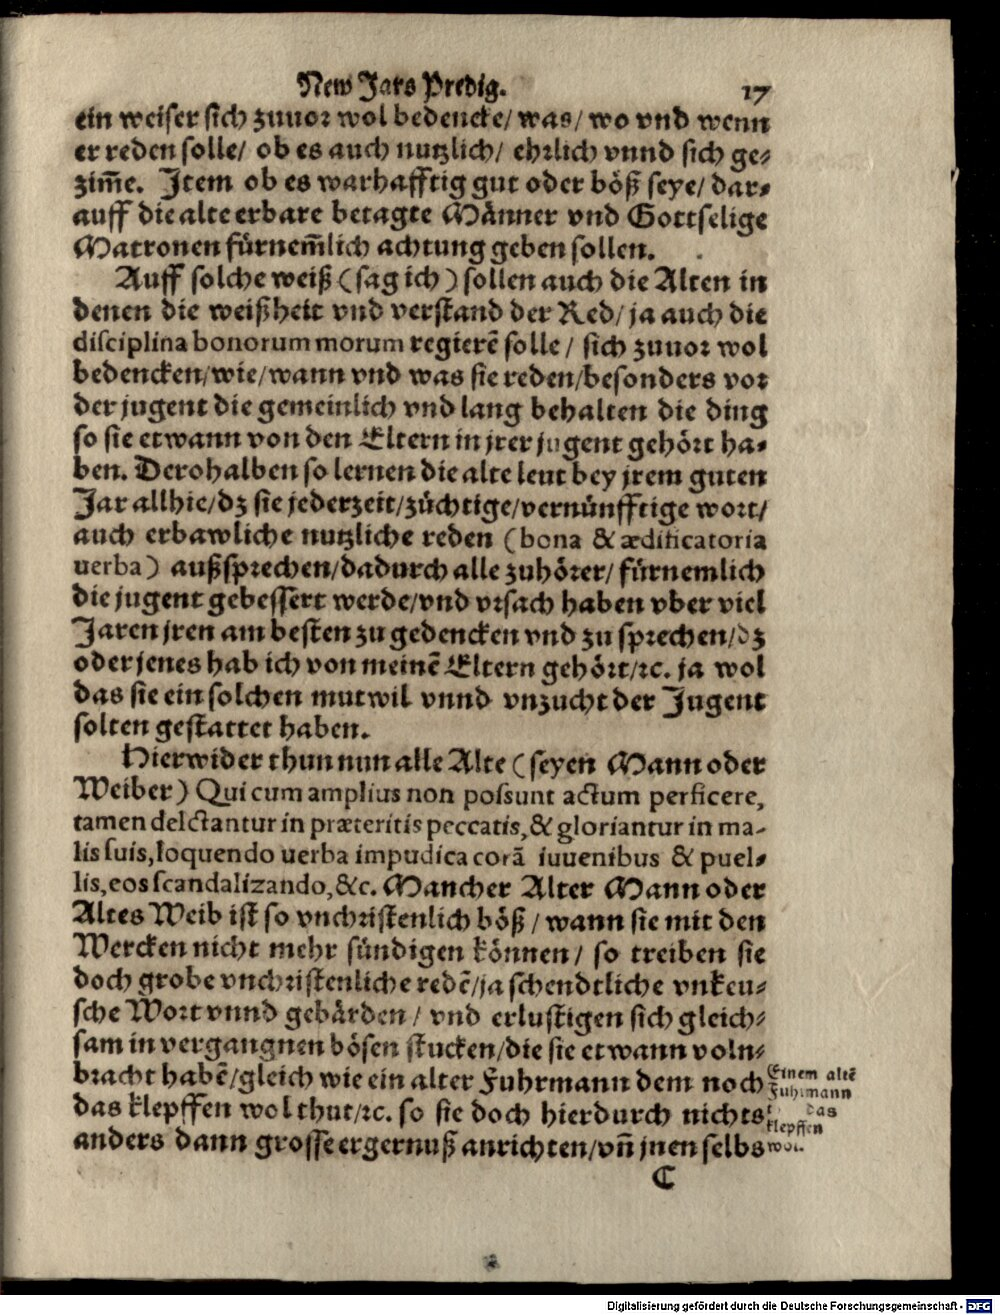 New Jars Predig. 17
ein weiser sich zuuor wol bedencke/ was/ wo vnd wenn
er reden solle/ ob es auch nutzlich/ ehrlich vnnd sich ge-
zim̃e. Jtem ob es warhafftig gut oder böß seye/ dar-
auff die alte erbare betagte Männer vnd Gottselige
Matronen fürnem̃lich achtung geben sollen.
Auff solche weiß (sag ich) sollen auch die Alten in
denen die weißheit vnd verstand der Red/ ja auch die
disciplina bonorum morum regierẽ solle/ sich zuuor wol
bedencken/wie/wann vnd was sie reden/besonders vor
der jugent die gemeinlich vnd lang behalten die ding
so sie etwann von den Eltern in jrer jugent gehört ha-
ben. Derohalben so lernen die alte leut bey jrem guten
Jar allhie/dz sie jederzeit/züchtige/vernünfftige wort/
auch erbawliche nutzliche reden (bona & ædificatoria
uerba) außsprechen/dadurch alle zuhörer/ fürnemlich
die jugent gebessert werde/vnd vrsach haben vber viel
Jaren jren am besten zu gedencken vnd zu sprechen/dz
oder jenes hab ich von meinẽ Eltern gehört/ꝛc. ja wol
das sie ein solchen mutwil vnnd vnzucht der Jugent
solten gestattet haben.
Hierwider thun nun alle Alte (seyen Mann oder
Weiber) Qui cum amplius non possunt actum perficere,
tamen delctantur in præteritis peccatis, & gloriantur in ma-
lis suis, loquendo uerba impudica corã iuuenibus & puel-
lis, eos scandalizando, &c. Mancher Alter Mann oder
Altes Weib ist so vnchristenlich böß/ wann sie mit den
Wercken nicht mehr sündigen können/ so treiben sie
doch grobe vnchristenliche redẽ/ja schendtliche vnkeu-
sche Wort vnnd gebärden/ vnd erlustigen sich gleich-
sam in vergangnen bösen stucken/die sie etwann voln-
bracht habẽ/gleich wie ein alter Fuhrmann dem noch
das klepffen wol thut/ꝛc. so sie doch hierdurch nichts
anders dann grosse ergernuß anrichten/vñ jnen selbs
Einem altẽ
Fuhrmann
das
klepffen
wol.
C
Digitalisierung gefördert durch die Deutsche Forschungsgemeinschaft - DFG